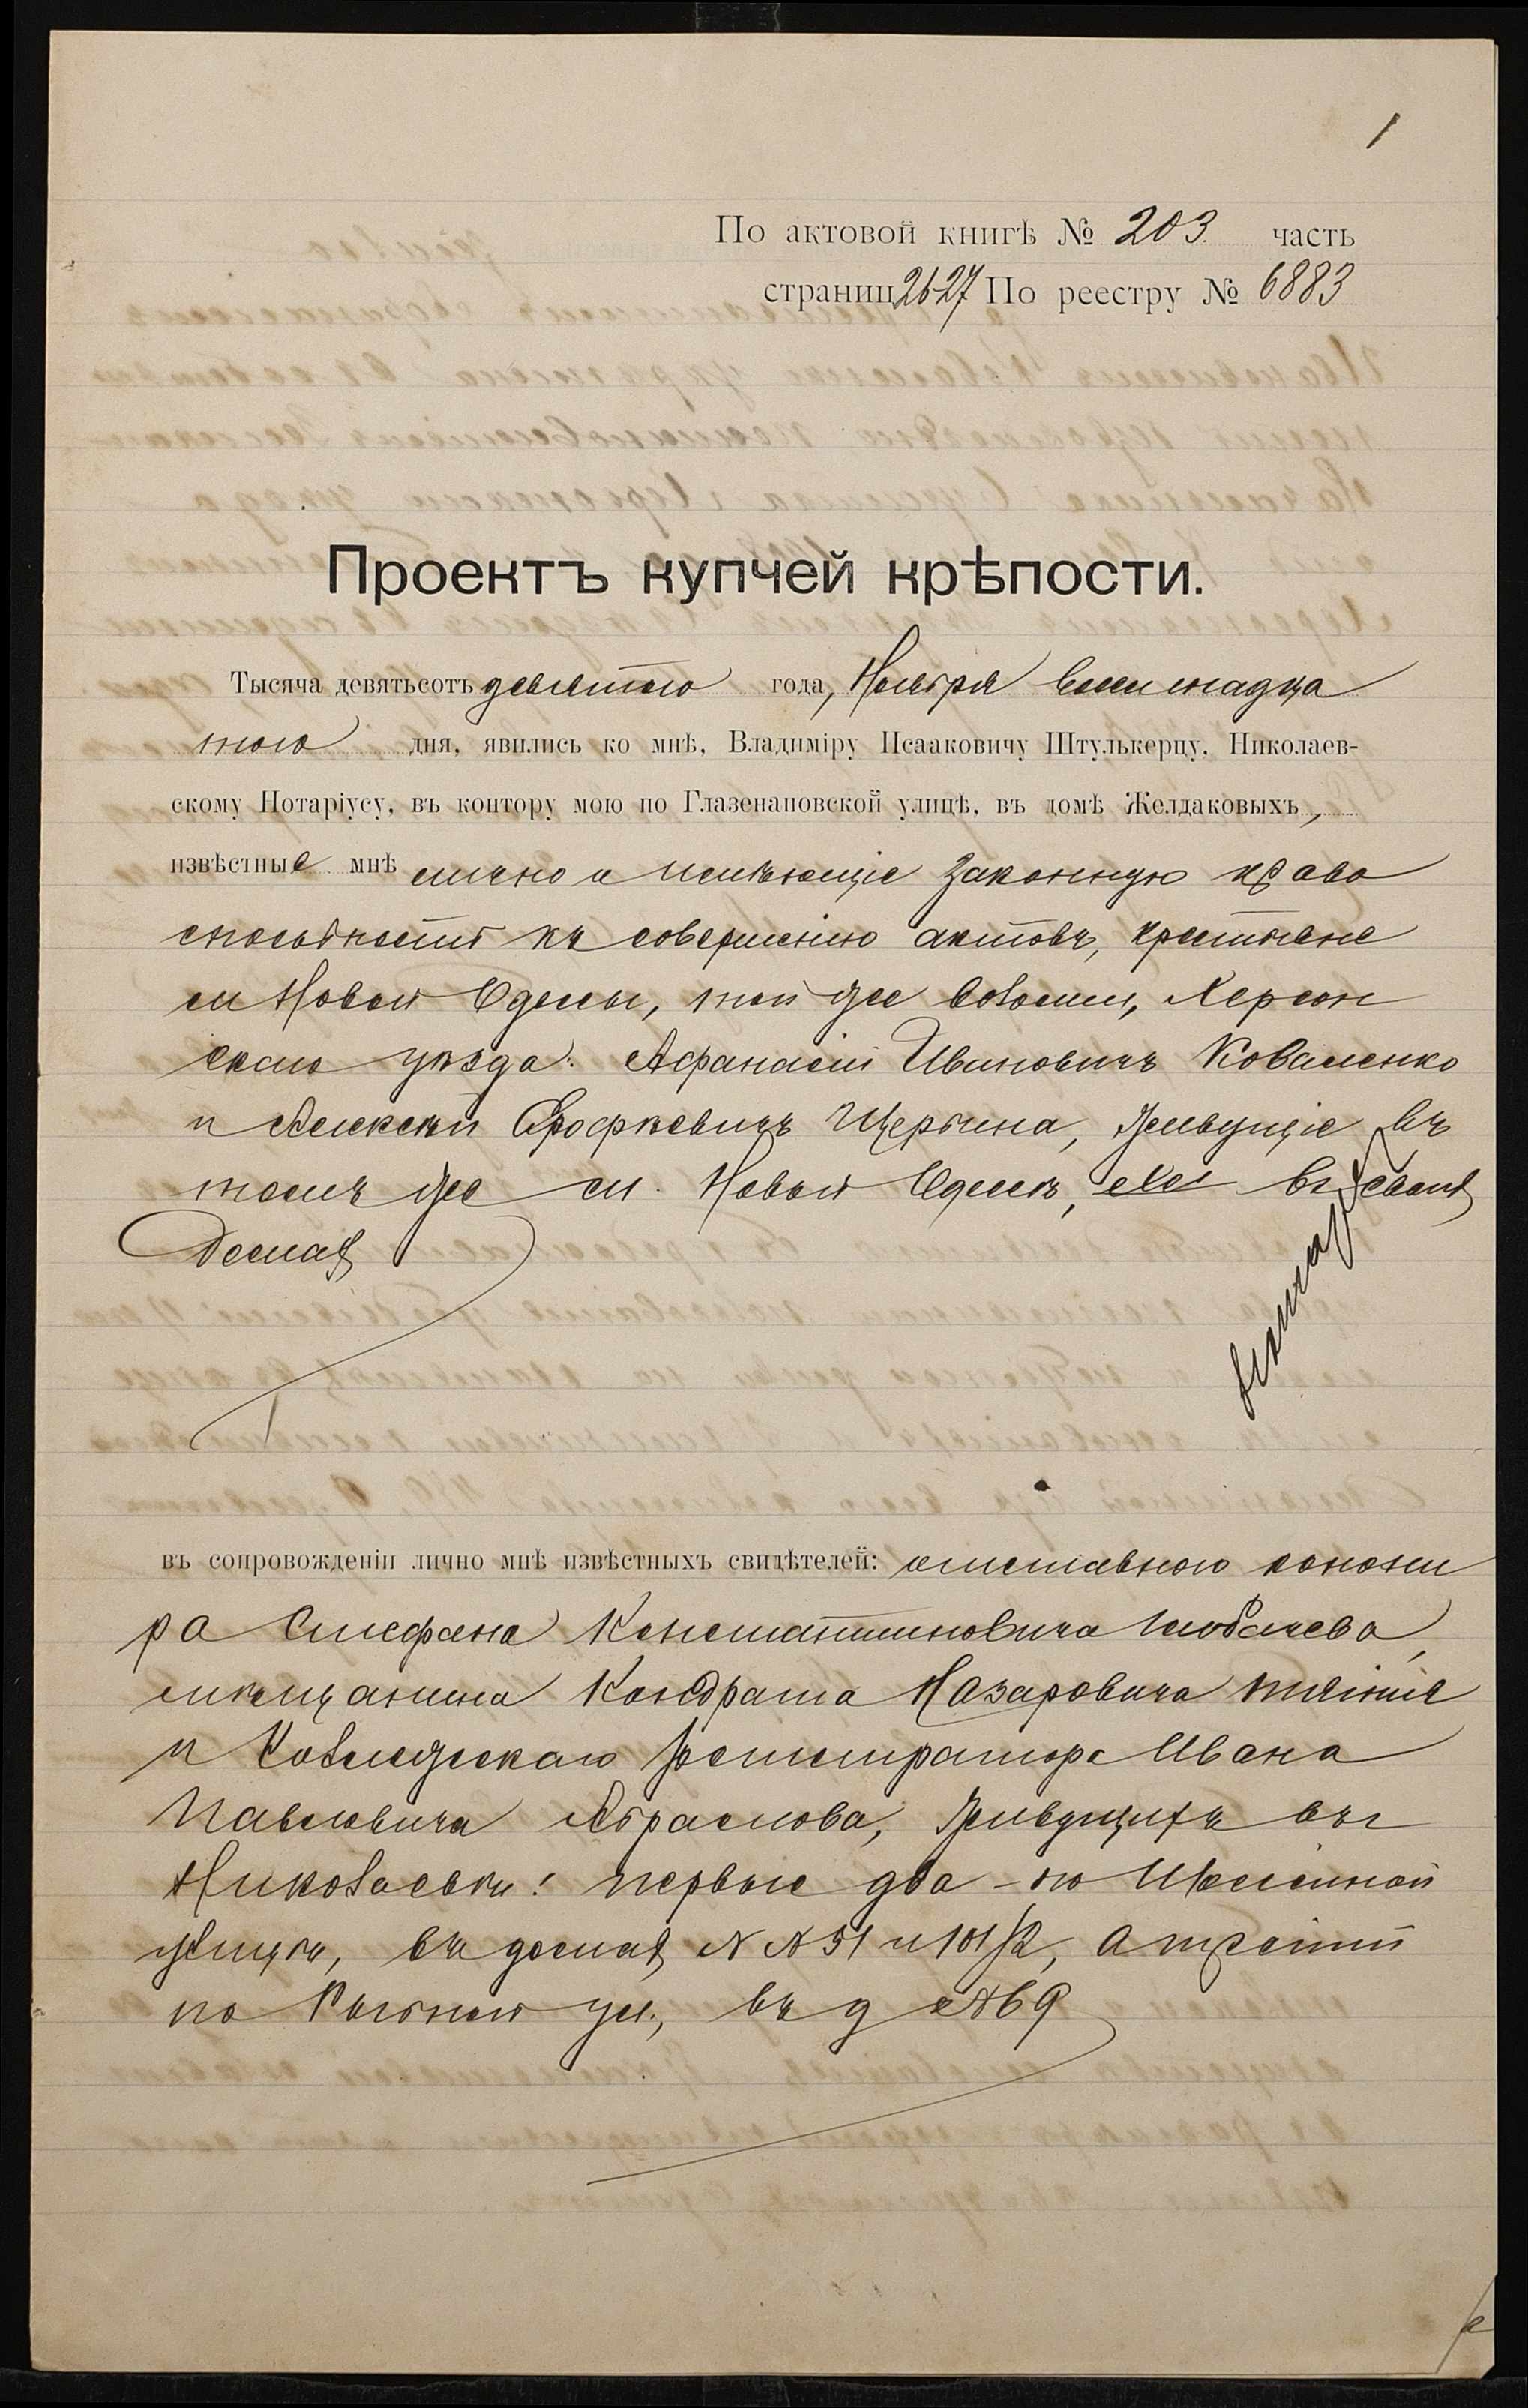 1
По актовой книгѣ № 203 часть
страниц 26 27 По реестру № 6883
Проектъ купчей крѣпости.
Тысяча девятьсотъ девятого года, Ноября восемнадца
таго дня, явились ко мнѣ, Владиміру Исааковичу Штулькерцу, Николаев-
скому Нотаріусу, въ контору мою по Глазенаповской улицѣ, въ домѣ Желдаковыхъ,
извѣстные мнѣ лично и имѣющіе законную право
способность къ совершенію актовъ, крестьяне
м Новой Одессы, той же волости, Херсон
скаго уѣзда: Афанасій Ивановичъ Коваленко
и Алексѣй Ерофѣевичъ Щербина, живущіе въ
томъ же м. Новой Одессѣ, въ своихъ
домахъ
въ сопровожденіи лично мнѣ извѣстныхъ свидѣтелей: отставного
Стефана Константиновича
мѣщанина Кондрата Назаровича
и Коллежскаго Регистратора Ивана
Павловича Абрамова, живущихъ въ г
Николаевѣ: первые два - по
улицѣ, въ домахъ № № 51 и 101/2, а третій
по ул., въ д № 69